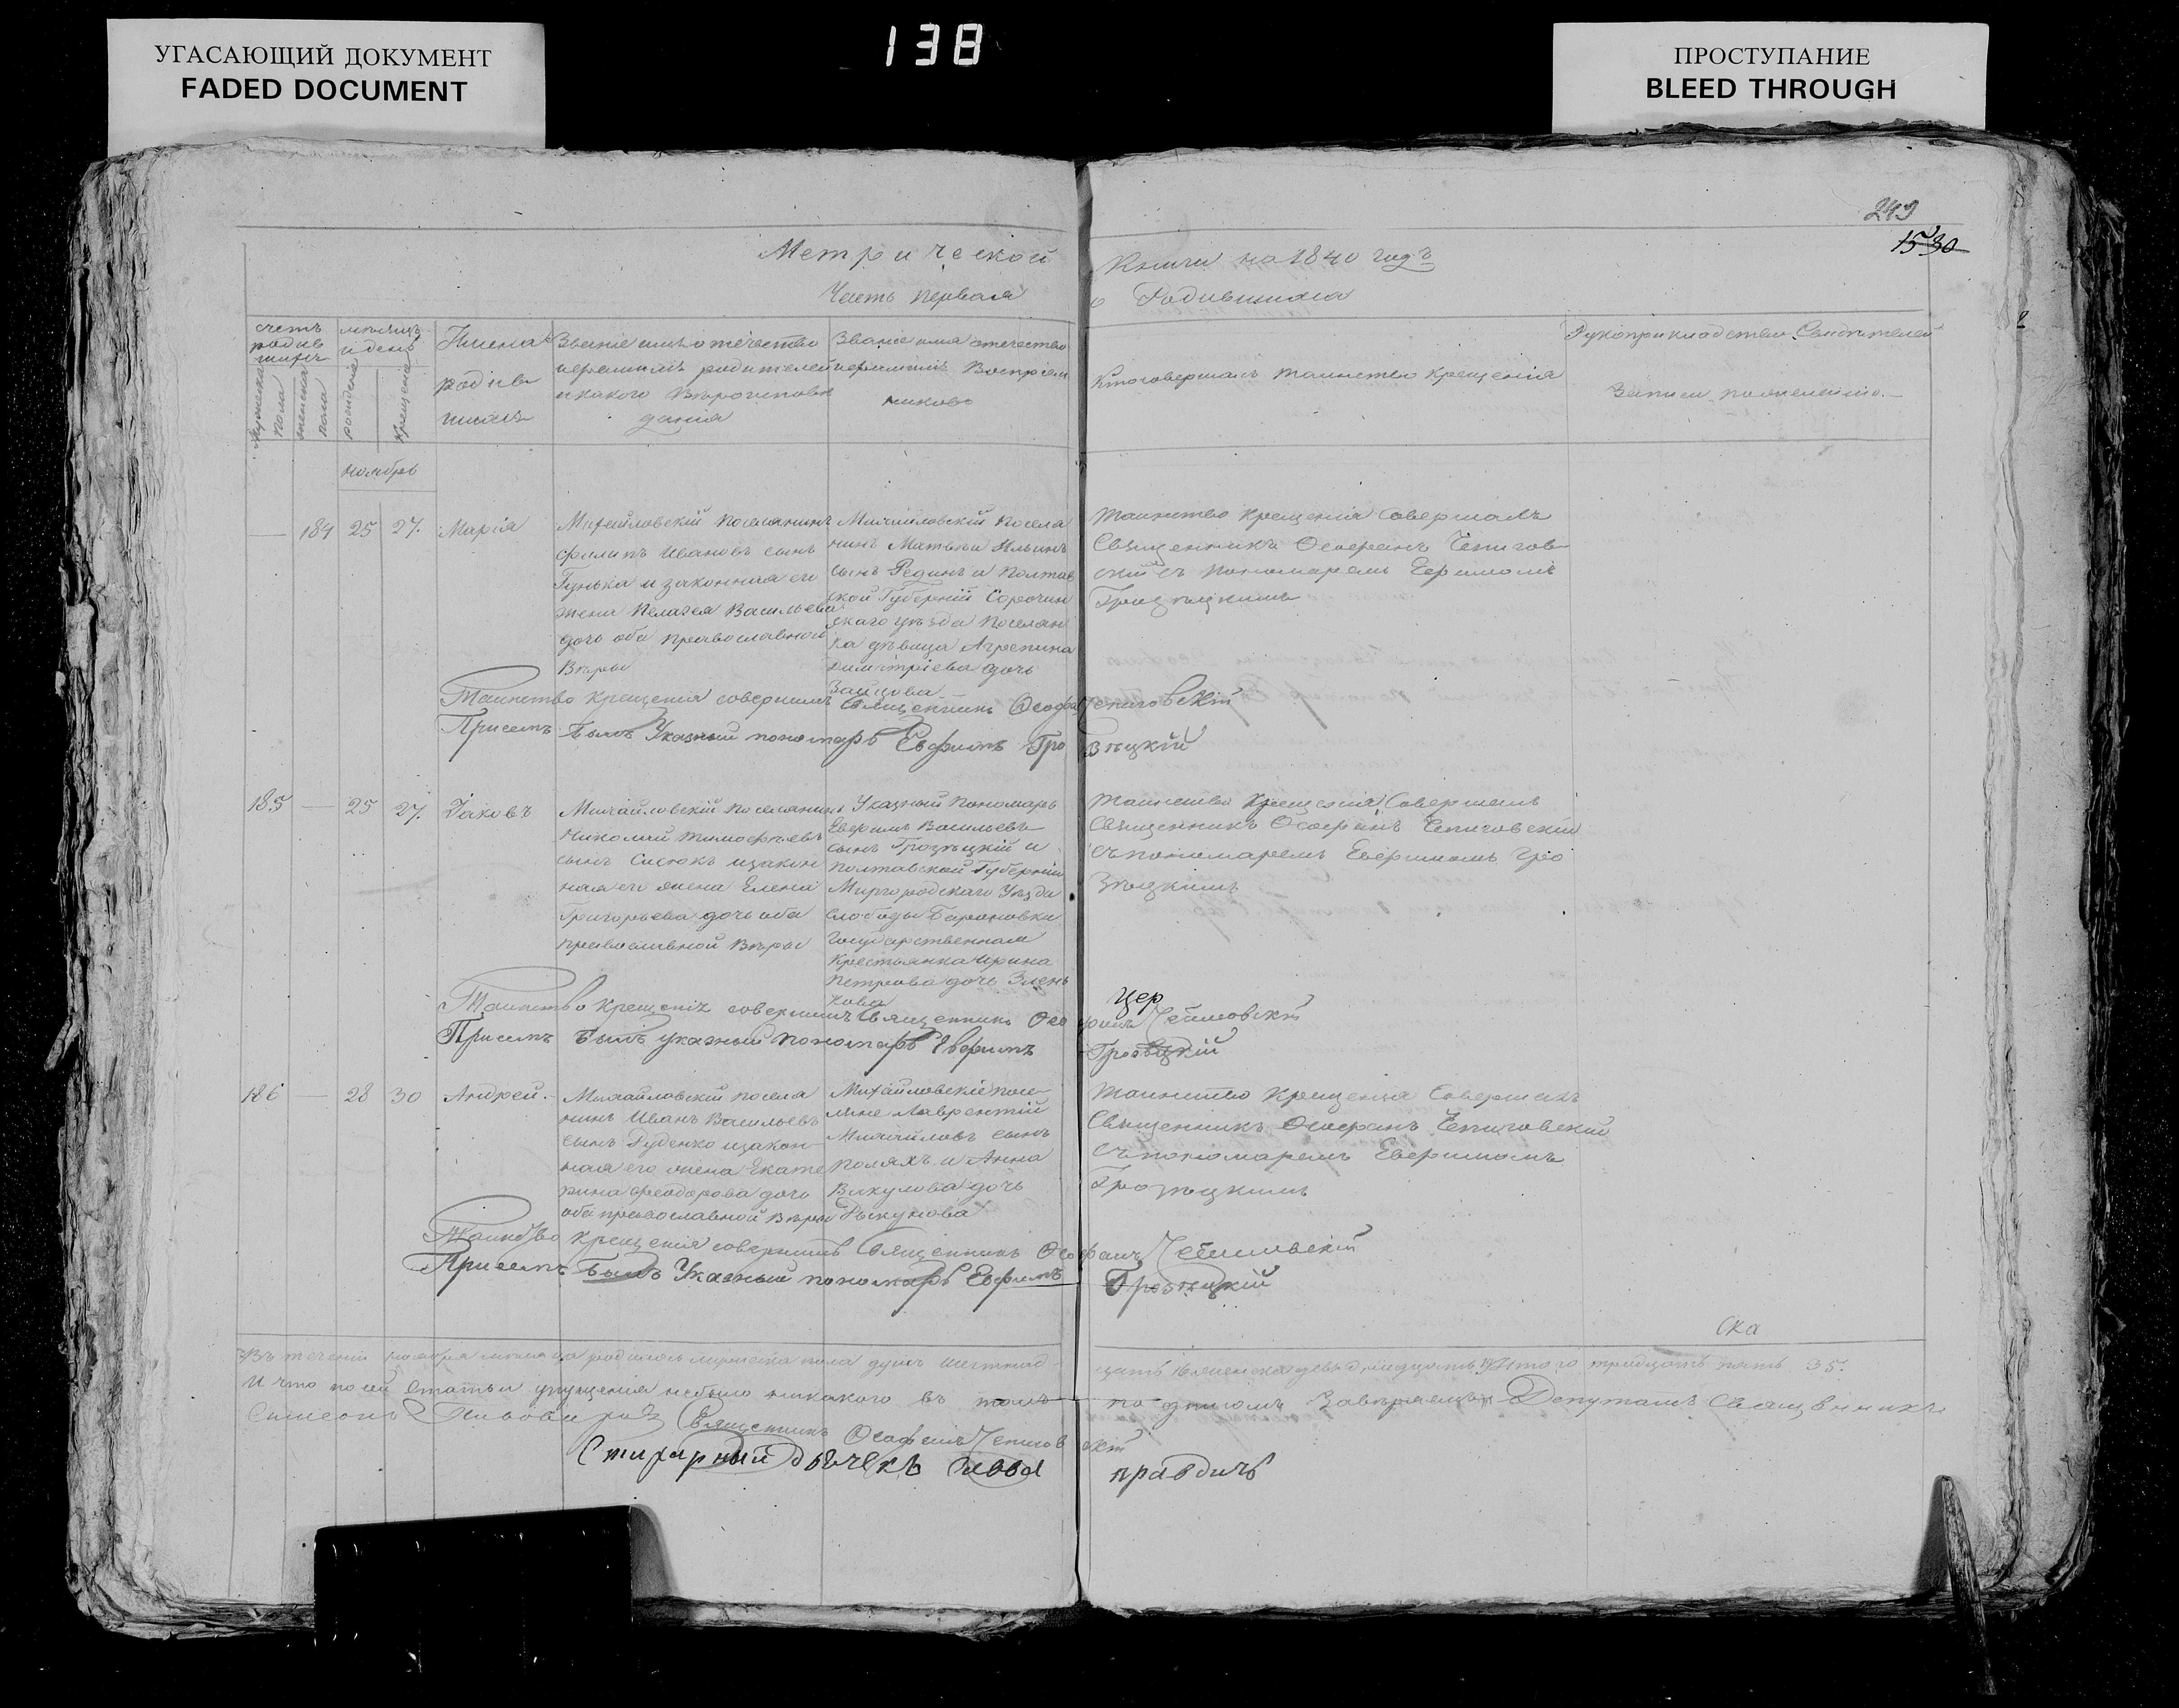 УГАСАЮЩИЙ ДОКУМЕНТ
FADED DOCUMENT
138
ПРОСТУПАНИЕ
BLEED THROUGH
249
1530
Метрической
Книги на 1840 годъ
Часть первая
о Родившихся
счетъ родив шихъ
мужеска пола
женска пола
месяцъ и день
рожденія
крещенія
Имена родив шихъ
Званіе имя отечество
и фамилія родителей
и какого вѣроиспове
данія
Званіе имя отечество
и фамилія Воспріем
никовъ
Кто совершалъ таинство крещенія
Рукоприкладство Свидѣтелей
Записи по желанію.
ноябрь
— 184 25 27. Марія
Михайловскій поселянинъ
Филипъ Ивановъ сынъ
Гунька и законная его
жена Пелагея Васильева
дочь оба православной
Вѣры
Михайловскій посела
нинъ Матвѣй Ильинъ
сынъ Рединъ и Полтав
ской Губерніи Сорочин
скаго уѣзда поселян
ка дѣвица Агрепина
Димитріева дочь
Зайцова
Таинство крещенія совершалъ
Священникъ Ѳеофанъ Чепигов
скій съ пономаремъ Ефимомъ
Грозѣцкимъ
Таинство крещенія совершилъ Священникъ Ѳеофан Чепиговскій
Присемъ былъ Указный пономарь Евфимъ Гро зѣцкій
185 — 25 27. Іаковъ
Михайловскій поселянинъ
Николай Тимофѣевъ
сынъ Сисюкъ и закон
ная его жена Елена
Григорьева дочь оба
православной Вѣры
Указный Пономарь
Евфимъ Васильевъ
сынъ Грозѣцкій и
Полтавской Губерніи
Миргородскаго Уѣзда
слободы Барановки
Государственная
Крестьянка Ирина
Петрова дочь Злень
кова
Таинство крещенія Совершалъ
Священникъ Ѳеофанъ Чепиговскій
съ пономаремъ Евфимомъ Гро
зѣцкимъ
Цер
Таинство крещенія совершилъ Священникъ Ѳео фанъ Чепиговскій
Присемъ былъ указный пономарь Евфимъ Грозѣцкій
186 — 28 30 Андрей.
Михайловскій посела
нинъ Иванъ Васильевъ
сынъ Дуденко и закон
ная его жена Екате
рина Феодорова дочь
оба православной вѣры
Михайловскіе посе
ляне Лаврентій
Михайловъ сынъ
Поляхъ и Анна
Викулова дочь
Рыкунова
Таинство Крещенія Совершалъ
Священникъ Ѳеофанъ Чепиговскій
съ пономаремъ Евфимомъ
Грозѣцкимъ
Таинство крещенія совершилъ Священникъ Ѳео фанъ Чепиговскій
Присемъ былъ Указный пономарь Евфимъ Грозѣцкій
ска
Въ теченіи ноября месяца родилось мужеска пола душъ шестнад цать 16 женска девятнадцать 19 Итого тридцать пять 35.
И что по сей Статьи упущенія небыло никакого въ томъ подписомъ Завѣряемъ Депутатъ Священникъ
Симеонъ Пивоваровъ Священникъ Ѳеофанъ Чепигов скій
Стихарный дьячекъ Савва правдичъ